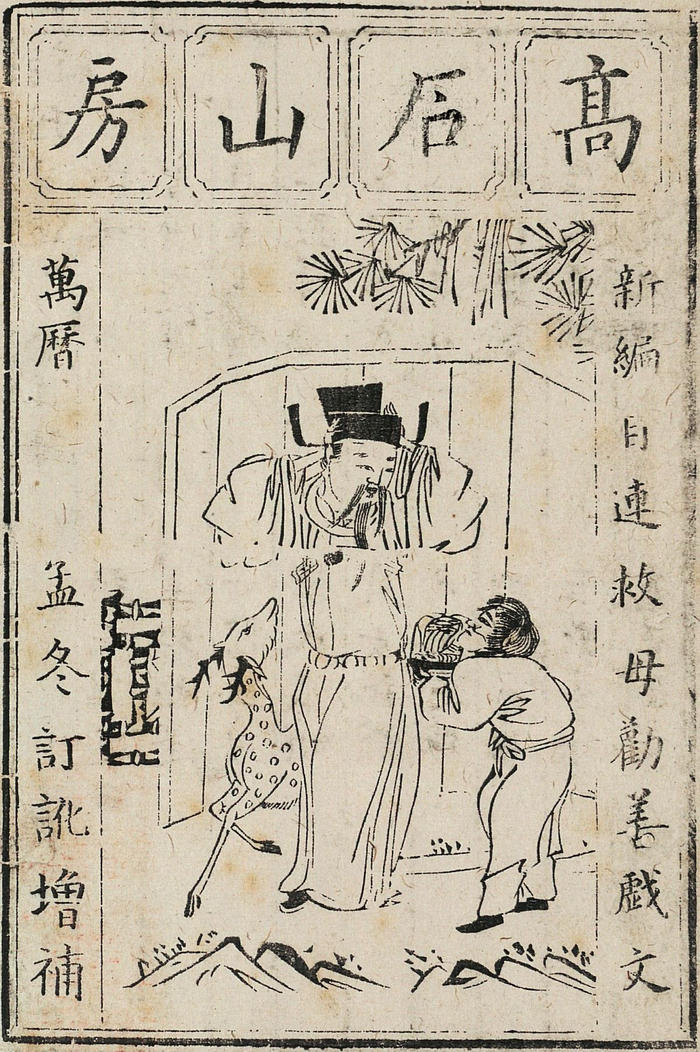 高石山房
新編目連救母勸善戲文
萬曆 孟冬訂訛增補